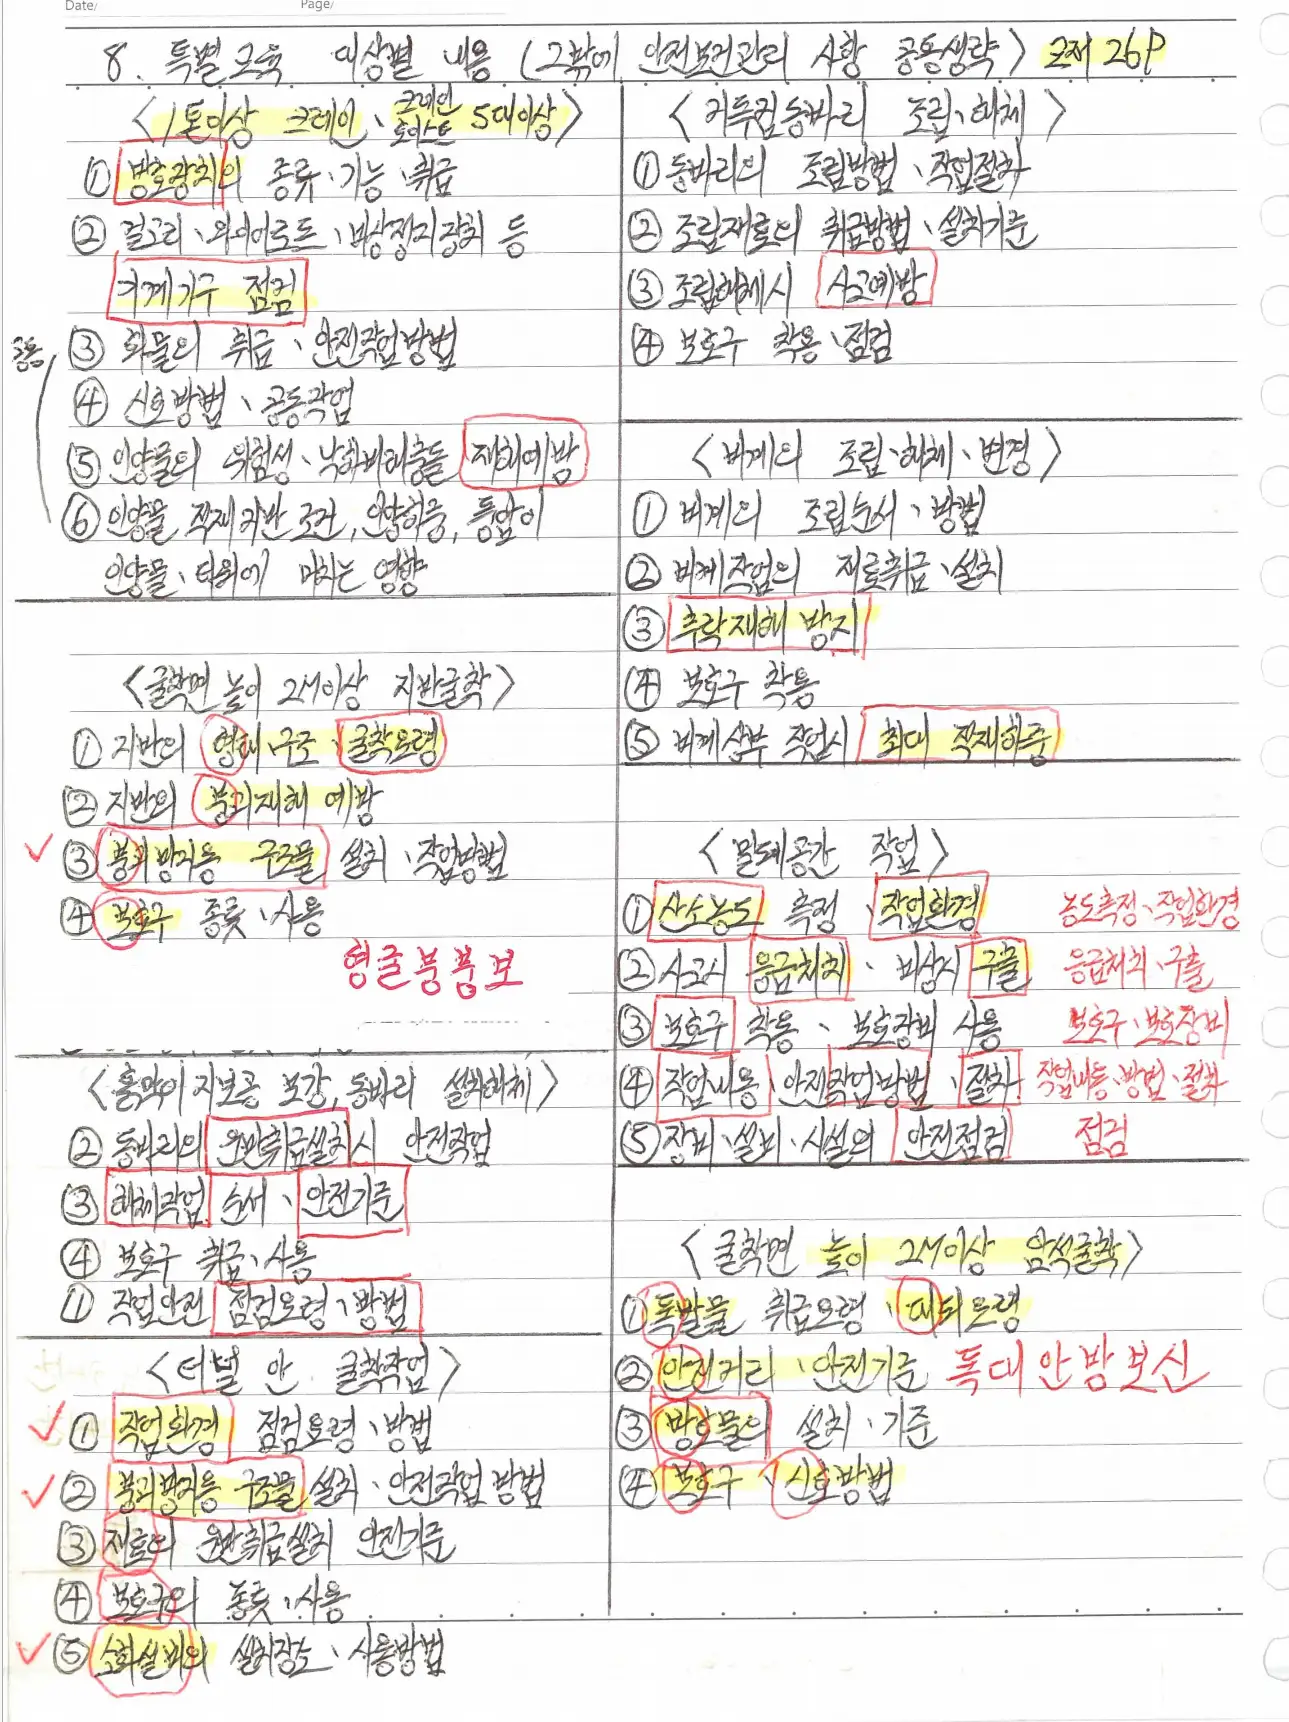 Date/
Page/
8. 특별교육 대상별 내용 (그밖에 안전보건관리 사항 공통생략) 교재 26P
<1톤이상 크레인, 크레인 호이스트 5대이상>
① 방호장치의 종류·기능·취급
② 걸고리·와이어로프·비상정지장치 등
기계기구 점검
공통
③ 화물의 취급·안전작업방법
④ 신호방법·공동작업
⑤ 인양물의 위험성·낙하비래충돌 재해예방
⑥ 인양물 적재지반 조건, 인양하중, 풍압이
인양물·타워에 미치는 영향
<굴착면 높이 2M이상 지반굴착>
① 지반의 형태·구조·굴착요령
② 지반의 붕괴재해 예방
③ 붕괴방지용 구조물 설치·작업방법
④ 보호구 종류·사용
형굴붕붕보
<흙막이지보공 보강, 동바리 설치해체>
② 동바리의 운반취급설치시 안전작업
③ 해체작업 순서·안전기준
④ 보호구 취급·사용
① 작업안전 점검요령·방법
<터널 안 굴착작업>
① 작업환경 점검요령·방법
② 붕괴방지용 구조물 설치·안전작업 방법
③ 재료의 운반취급설치 안전기준
④ 보호구의 종류·사용
⑤ 소화설비의 설치장소·사용방법
<거푸집동바리 조립·해체>
① 동바리의 조립방법·작업절차
② 조립재료의 취급방법·설치기준
③ 조립해체시 사고예방
④ 보호구 착용·점검
<비계의 조립·해체·변경>
① 비계의 조립순서·방법
② 비계작업의 재료취급·설치
③ 추락재해 방지
④ 보호구 착용
⑤ 비계상부 작업시 최대 적재하중
<밀폐공간 작업>
① 산소농도 측정·작업환경 농도측정·작업환경
② 사고시 응급처치·비상시 구출 응급처치·구출
③ 보호구 착용·보호장비 사용 보호구·보호장비
④ 작업내용·안전작업방법·절차 작업내용·방법·절차
⑤ 장비·설비·시설의 안전점검 점검
<굴착면 높이 2M이상 암석굴착>
① 폭발물 취급요령·대피요령
② 안전거리·안전기준 폭대안방보신
③ 방호물의 설치·기준
④ 보호구·신호방법